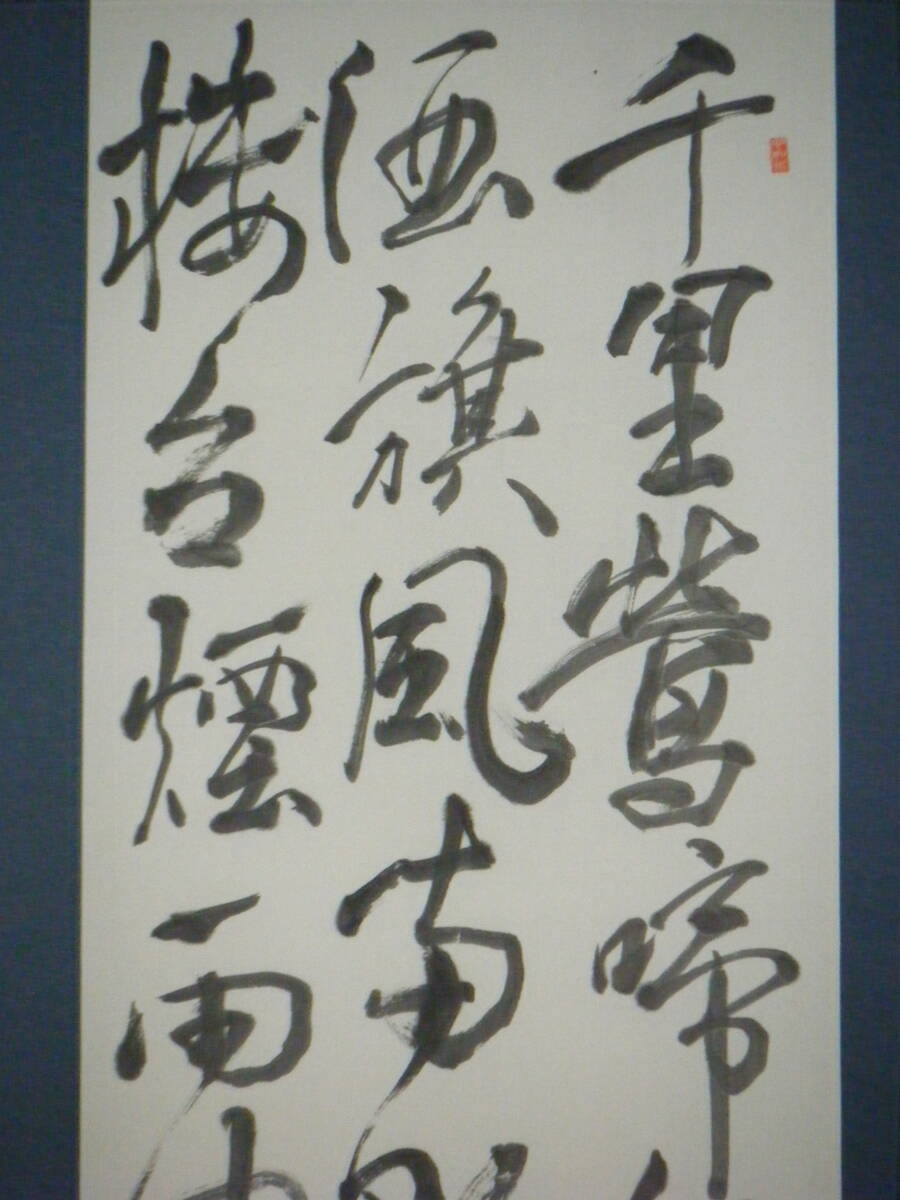 千里鶯啼
酒旗風南
楼台煙雨